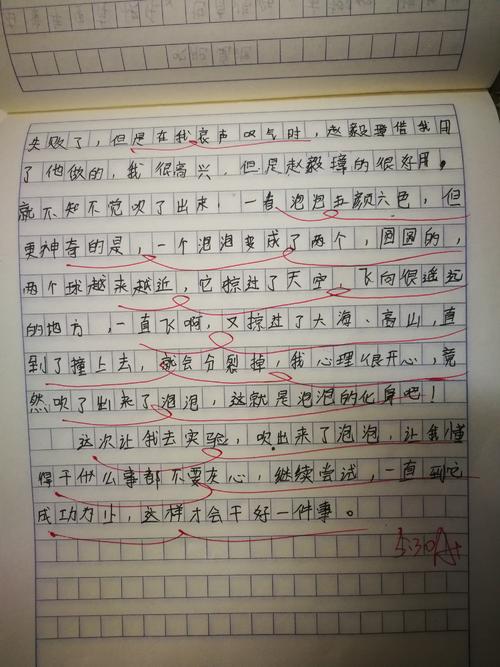 失败了，但是在我哀声叹气时，赵毅璋借我用
了他做的，我很高兴，但是赵毅璋的很好用。
就不知不觉吹了出来，一看泡泡五颜六色，但
更神奇的是，一个泡泡变成了两个，圆圆的，
两个球越来越近，它掠过了天空，飞向很遥远
的地方，一直飞啊，又掠过了大海、高山，直
到了撞上去，就会分裂掉，我心理很开心，竟
然吹了出来了泡泡，这就是泡泡的化身吧！
这次让我去实验，吹出来了泡泡，让我懂
得干什么事都不要灰心，继续尝试，一直到它
成功为止，这样才会干好一件事。
5.30 A+